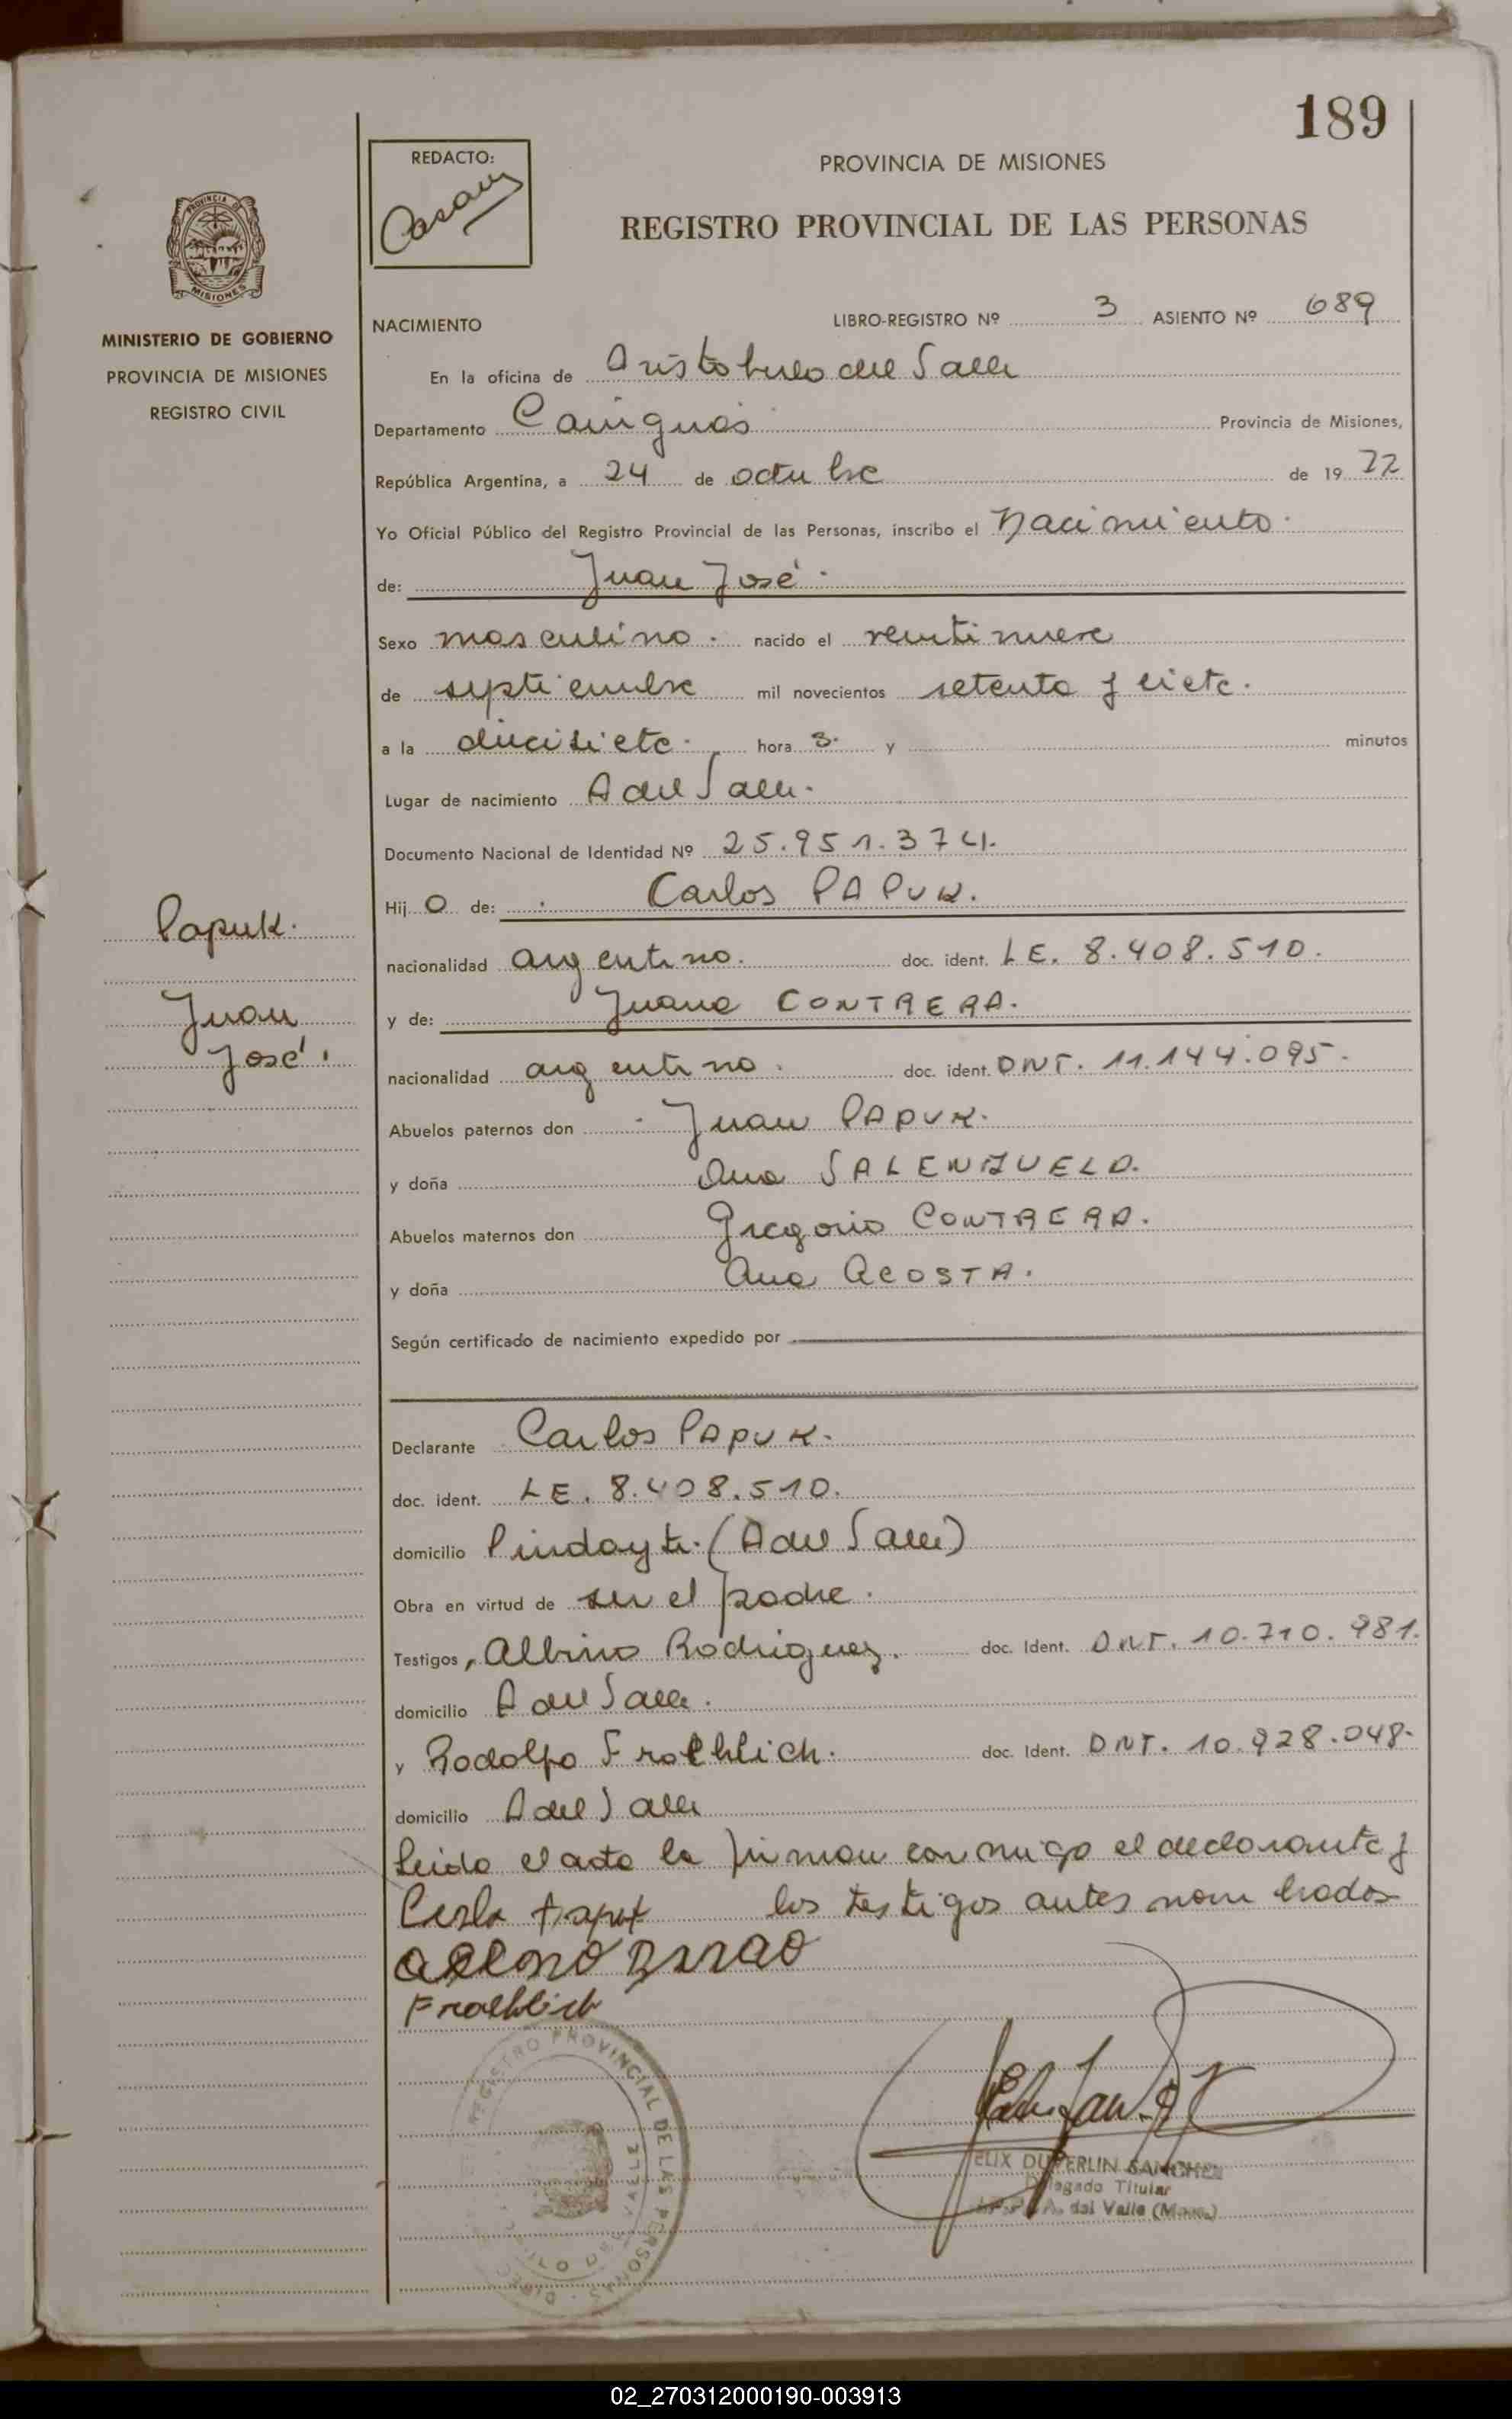 189
REDACTO:
PROVINCIA DE MISIONES
REGISTRO PROVINCIAL DE LAS PERSONAS
PROVINCIA DE
MISIONES
MINISTERIO DE GOBIERNO
PROVINCIA DE MISIONES
REGISTRO CIVIL
NACIMIENTO
LIBRO-REGISTRO Nº 3 ASIENTO Nº 689
En la oficina de Aristobulo del Valle
Departamento Cainguás Provincia de Misiones,
República Argentina, a 24 de octubre de 19 77
Yo Oficial Público del Registro Provincial de las Personas, inscribo el Nacimiento.
de: Juan José.
Sexo masculino. nacido el veintinueve
de septiembre mil novecientos setenta y siete.
a la diecisiete. hora s. y minutos
Lugar de nacimiento A del Valle.
Documento Nacional de Identidad Nº 25.951.374.
Hij o de: Carlos PAPUK.
nacionalidad argentino. doc. ident. LE. 8.408.510.
y de: Juana CONTRERA.
nacionalidad argentino. doc. ident. DNI. 11.144.095.
Abuelos paternos don Juan PAPUK.
y doña Ana VALENZUELA.
Abuelos maternos don Gregorio CONTRERA.
y doña Ana ACOSTA.
Según certificado de nacimiento expedido por
Papuk.
Juan
José.
Declarante Carlos PAPUK.
doc. ident. LE. 8.408.510.
domicilio Pindayti. (A del Valle)
Obra en virtud de ser el padre.
Testigos, Albino Rodriguez. doc. Ident. DNI. 10.710.981.
domicilio A del Valle.
y Rodolfo Froehlich. doc. Ident. DNI. 10.928.048.
domicilio A del Valle
Leida el acta la firman conmigo el declarante y
los testigos antes nombrados
Froehlich
REGISTRO PROVINCIAL DE LAS PERSONAS
FELIX DUPERLIN SANCHEZ
Delegado Titular
A. del Valle (Mnes.)
02_270312000190-003913